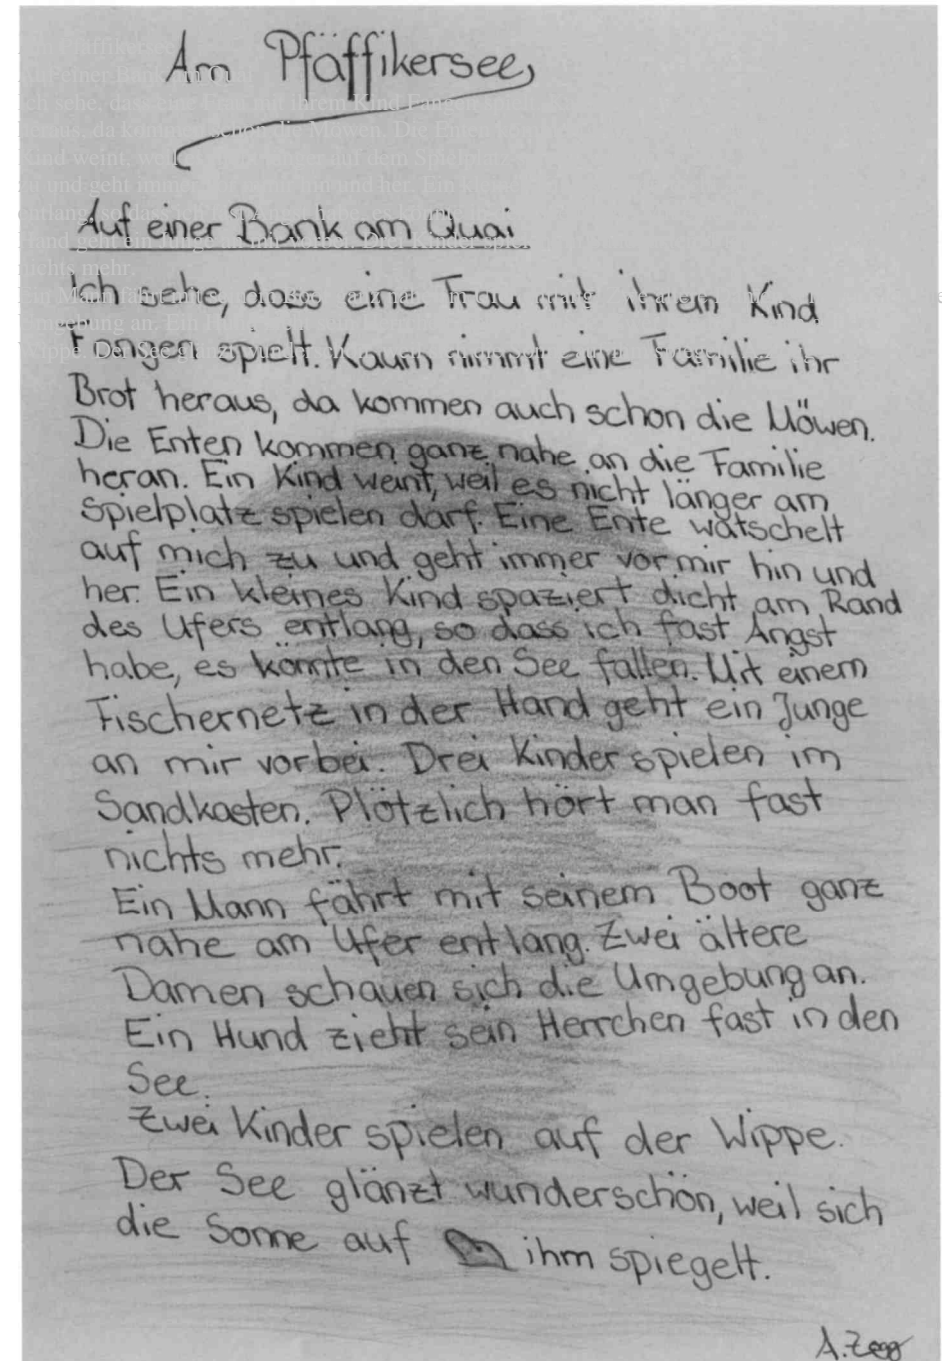 Am Pfäffikersee,
Auf einer Bank am Quai
Ich sehe, dass eine Frau mit ihrem Kind
Fangen spielt. Kaum nimmt eine Familie ihr
Brot heraus, da kommen auch schon die Möwen.
Die Enten kommen ganz nahe an die Familie
heran. Ein Kind weint, weil es nicht länger am
Spielplatz spielen darf. Eine Ente watschelt
auf mich zu und geht immer vor mir hin und
her. Ein kleines Kind spaziert dicht am Rand
des Ufers entlang, so dass ich fast Angst
habe, es könnte in den See fallen. Mit einem
Fischernetz in der Hand geht ein Junge
an mir vorbei. Drei Kinder spielen im
Sandkasten. Plötzlich hört man fast
nichts mehr.
Ein Mann fährt mit seinem Boot ganz
nahe am Ufer entlang. Zwei ältere
Damen schauen sich die Umgebung an.
Ein Hund zieht sein Herrchen fast in den
See.
Zwei Kinder spielen auf der Wippe.
Der See glänzt wunderschön, weil sich
die Sonne auf ihm spiegelt.
A. Zogg